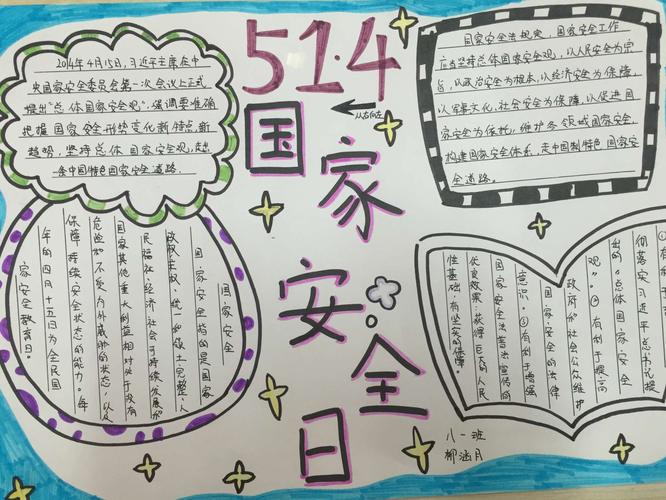 51.4
从右向左
国家安全日
2014年4月15日,习近平主席在中
央国家安全委员会第一次会议上正式
提出"总体国家安全观",强调要准确
把握国家安全形势变化新特点,新
趋势,坚持总体国家安全观,走出
一条中国特色国家安全道路。
国家安全法规定,国家安全工作
应当坚持总体国家安全观,以人民安全为宗
旨,以政治安全为根本,以经济安全为保障,
以军事文化,社会安全为保障,以促进国
家安全为依托,维护各领域国家安全,
构建国家安全体系,走中国制特色国家安
全道路。
国家安全
国家安全指的是国家
政权主权、统一和领土完整、人
民福祉、经济社会可持续发展和
国家其他重大利益相对处于没有
危险和不受内外威胁的状态,以及
保障持续安全状态的能力。每
年的四月十五日为全民国
家安全教育日。
彻落实习近平总书记提
出的"总体国家安全
观"。②有利于提高
政府和社会公众维护
国家安全的法律
意识。③有利于增强
国家安全法普法宣传的
优良效果,获得巨大的人民
性基础,有坚实的保障。
八一班
柳涵月